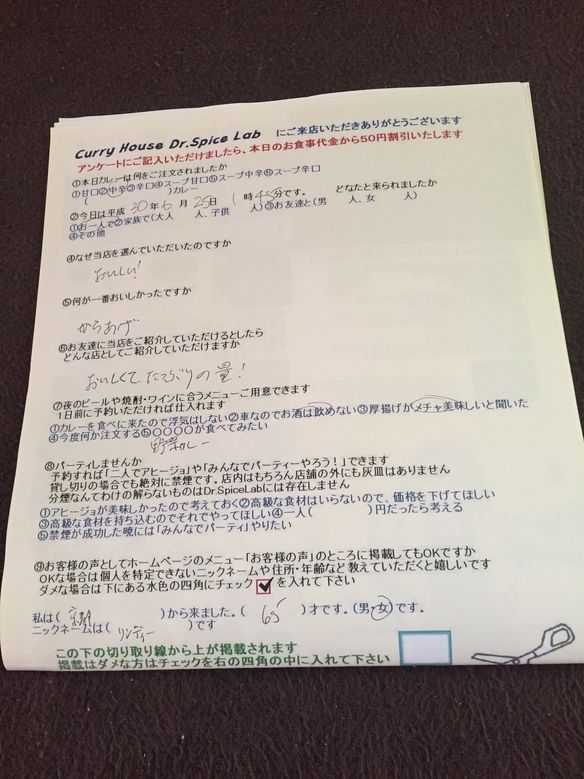 Curry House Dr.Spice Lab にご来店いただきありがとうございます
アンケートにご記入いただけましたら、本日のお食事代金から50円割引いたします
①本日カレーは何をご注文されましたか
①甘口②中辛③辛口④スープ甘口⑤スープ中辛⑥スープ辛口
( )カレー
②今日は平成 30年 6月 25日 1時45分です。 どなたと来られましたか
①お一人で②家族で(大人 人、子供 人)③お友達と(男 人、女 人)
④その他
④なぜ当店を選んでいただいたのですか
おいしい!
⑤何が一番おいしかったですか
からあげ
⑥お友達に当店をご紹介していただけるとしたら
どんな店としてご紹介していただけますか
おいしくてたっぷりの量!
⑦夜のビールや焼酎・ワインに合うメニューご用意できます
1日前に予約いただければ仕入れます
①カレーを食べに来たので浮気はしない②車なのでお酒は飲めない③厚揚げがメチャ美味しいと聞いた
④今度何か注文する⑤〇〇〇〇が食べてみたい
野菜カレー
⑧パーティしませんか
予約すれば「二人でアヒージョ」や「みんなでパーティーやろう!」できます
貸し切りの場合でも絶対に禁煙です。店内はもちろん店舗の外にも灰皿はありません
分煙なんてわけの解らないものはDr.SpiceLabには存在しません
①アヒージョが美味しかったので考えておく②高級な食材はいらないので、価格を下げてほしい
③高級な食材を持ち込むのでそれでやってほしい④一人( )円だったら考える
⑤禁煙が成功した暁には「みんなでパーティ」やりたい
⑨お客様の声としてホームページのメニュー「お客様の声」のところに掲載してもOKですか
OKな場合は個人を特定できないニックネームや住所・年齢など教えていただくと嬉しいです
ダメな場合は下にある水色の四角にチェック を入れて下さい
私は( )から来ました。( 65 )才です。(男・女)です。
ニックネームは( リンディー )です
この下の切り取り線から上が掲載されます
掲載はダメな方はチェックを右の四角の中に入れて下さい